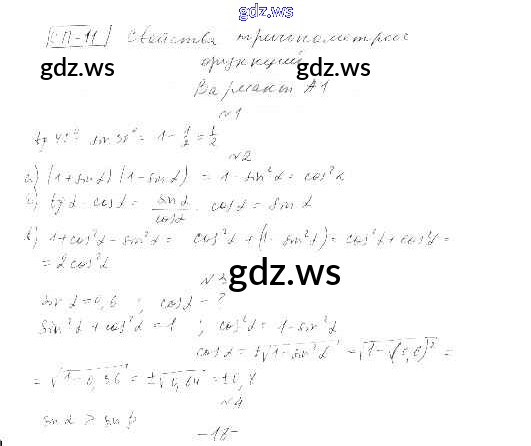 gdz.ws
СП-11 Свойства тригонометрич
функций
gdz.ws gdz.ws
Вариант А1
№1
tg 45° · sin 30° = 1 · 1/2 = 1/2
№2
а) (1 + sin α)(1 − sin α) = 1 − sin²α = cos²α
б) tg α · cos α = sin α / cos α · cos α = sin α
в) 1 + cos²α − sin²α = cos²α + (1 − sin²α) = cos²α + cos²α =
= 2cos²α
gdz.ws
№3
sin α = 0,6 ; cos α − ?
sin²α + cos²α = 1 ; cos²α = 1 − sin²α
cos α = ±√(1 − sin²α) = √(1 − (0,6)²) =
= √(1 − 0,36) = ±√0,64 = ±0,8
№4
sin α > sin β
−18−